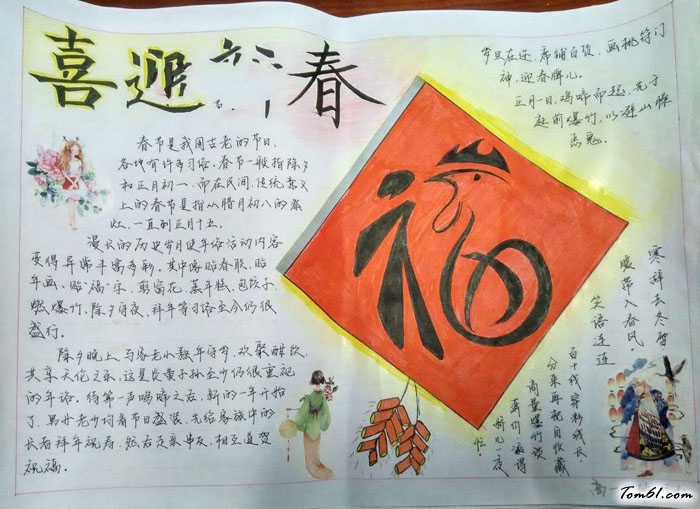 喜迎新春
春节是我国古老的节日,
各地有许多习俗,春节一般指除夕
和正月初一,而在民间,传统意义
上的春节是指从腊月初八的
灶,一直到正月十五。
漫长的历史岁月使年俗活动内容
变得异常丰富多彩。其中像贴春联、贴
年画、贴“福”字、剪窗花、蒸年糕、包饺子、
燃爆竹、除夕守夜、拜年等习俗至今仍很
盛行。
除夕晚上,与家老小熬年守岁,欢聚酣饮,
共享天伦之乐,这是炎黄子孙至今仍很重视
的年俗。待第一声鸡啼之后,新的一年开始
了,男女老少均着节日盛装,先给家族中的
长者拜年祝寿,然后走亲串友,相互道贺
祝福。
岁旦在迩,席铺百货,画桃符门
神,迎春牌儿。
正月一日,鸡啼而起,先于
庭前爆竹,以避山臊
恶鬼。
福
寒辞去冬雪
暖带入春风。
笑语连连
高一
Tom61.com